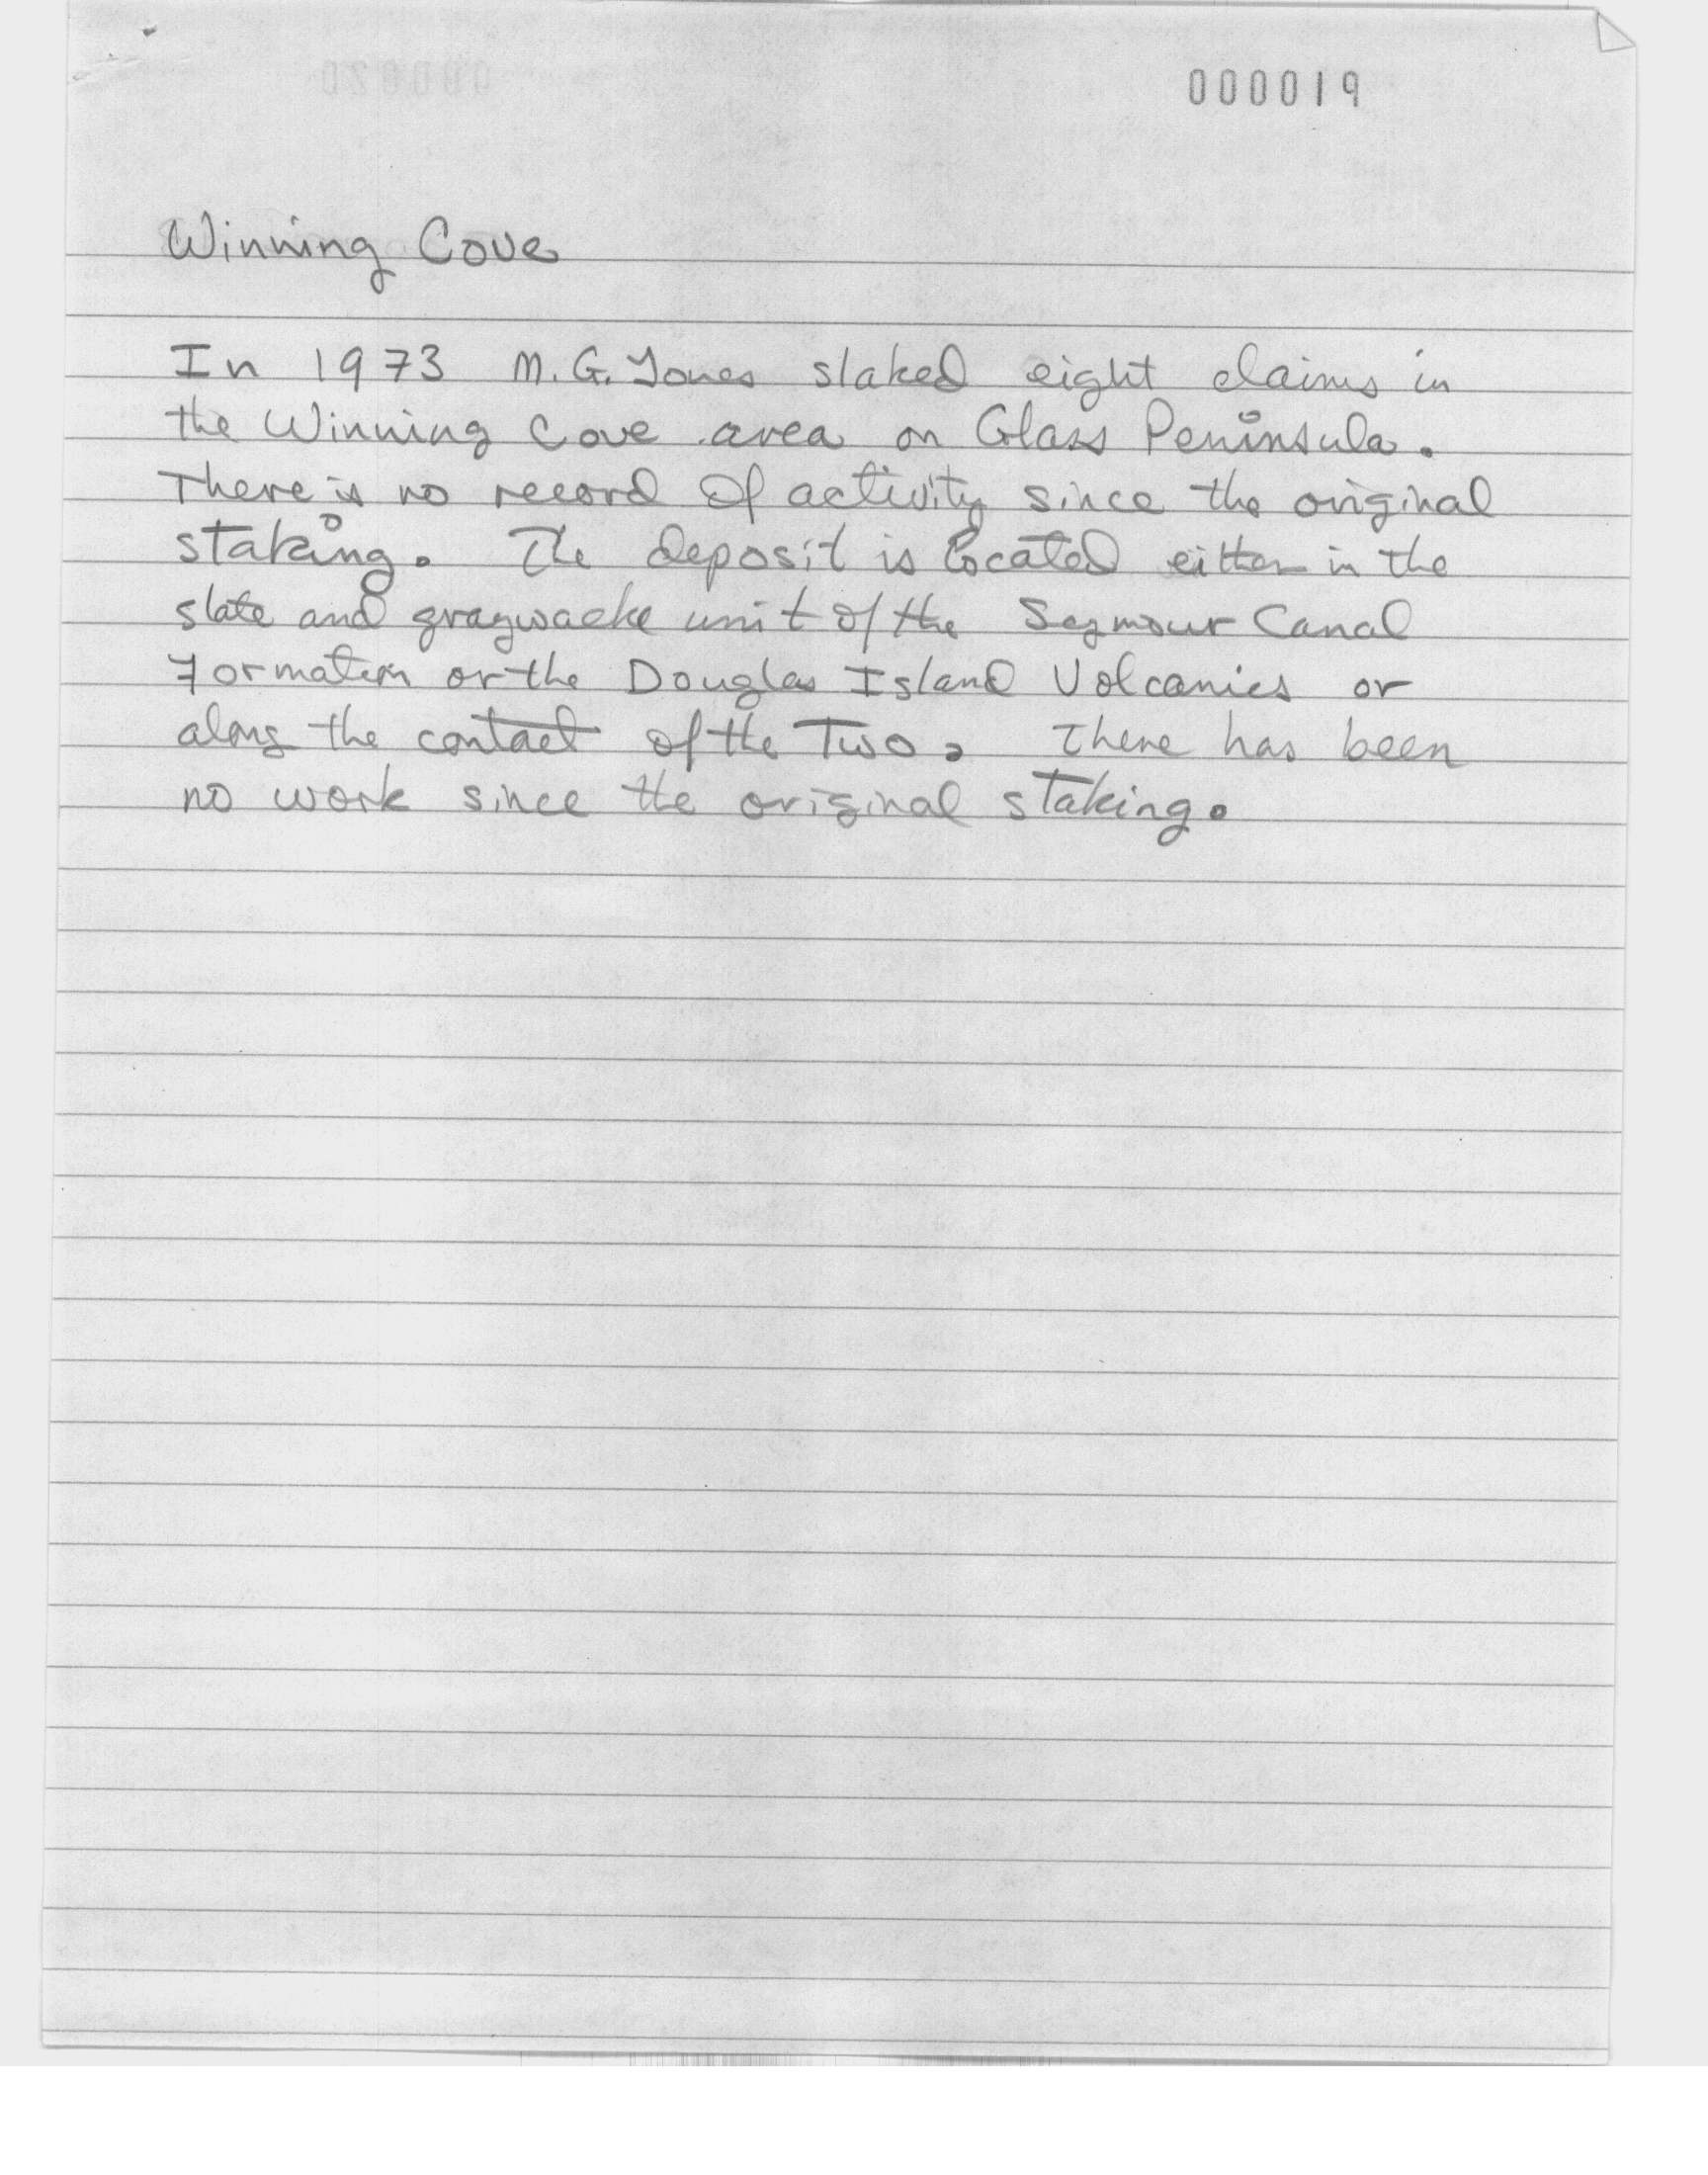 000019
Winning Cove
In 1973 M.G. Jones staked eight claims in
the Winning Cove area on Glass Peninsula.
There is no record of activity since the original
staking. The deposit is located either in the
slate and graywacke unit of the Seymour Canal
Formation or the Douglas Island Volcanics or
along the contact of the Two. There has been
no work since the original staking.